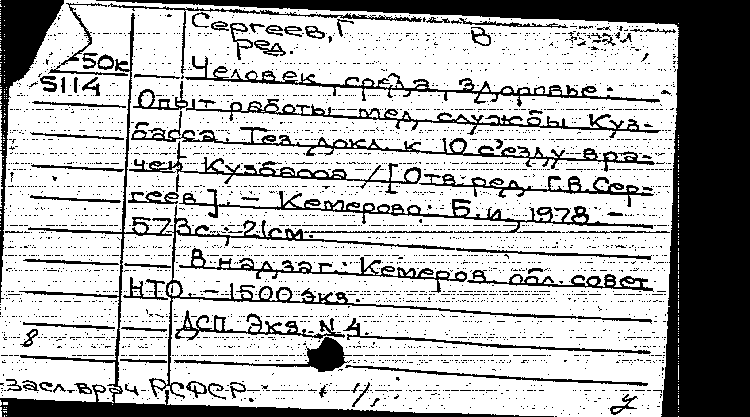 Сергеев, Г В
ред.
-50к
5114
Человек, среда, здоровье:
Опыт работы мед. службы Куз-
басса. Тез. докл. к 10 съезду вра-
чей Кузбасса / [Отв. ред. Г.В. Сер-
геев]. – Кемерово: Б.и., 1978. –
573с.; 21см.
В надзаг.: Кемеров. обл. совет
НТО. – 1500 экз.
ДСП. Экз. N 4.
8
Засл. врач РСФСР.
у